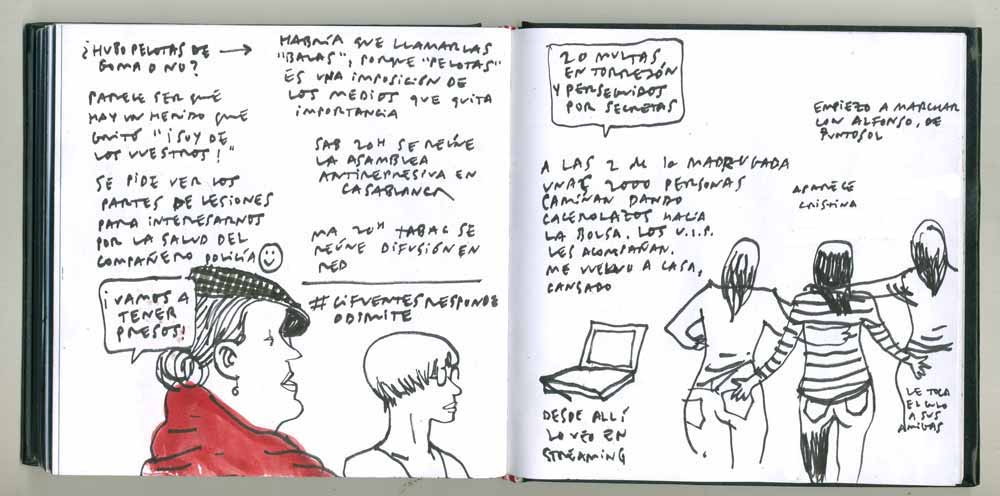 ¿HUBO PELOTAS DE
GOMA O NO?
PARECE SER QUE
HAY UN HERIDO QUE
GRITÓ "¡SOY DE
LOS VUESTROS!"
SE PIDE VER LOS
PARTES DE LESIONES
PARA INTERESARNOS
POR LA SALUD DEL
COMPAÑERO POLICÍA
¡VAMOS A
TENER
PRESOS!
HABRÍA QUE LLAMARLAS
"BALAS", PORQUE "PELOTAS"
ES UNA IMPOSICIÓN DE
LOS MEDIOS QUE QUITA
IMPORTANCIA
SAB 20H SE REÚNE
LA ASAMBLEA
ANTIRREPRESIVA EN
CASABLANCA
MA 20H TABAC SE
REÚNE DIFUSIÓN EN
RED
#CIFUENTESRESPONDE
ODIMITE
20 MULTAS
EN TORREJÓN
Y PERSEGUIDOS
POR SECRETAS
EMPIEZO A MARCHAR
CON ALFONSO, DE
PUNTOSOL
A LAS 2 de la MADRUGADA
UNAS 2000 PERSONAS
CAMINAN DANDO
CACEROLAZOS HACIA
LA BOLSA. LOS U.I.P.
LES ACOMPAÑAN.
ME VUELVO A CASA,
CANSADO
APARECE
CRISTINA
DESDE ALLÍ
LO VEO EN
STREAMING
LE TOCA
EL CULO
A SUS
AMIGAS